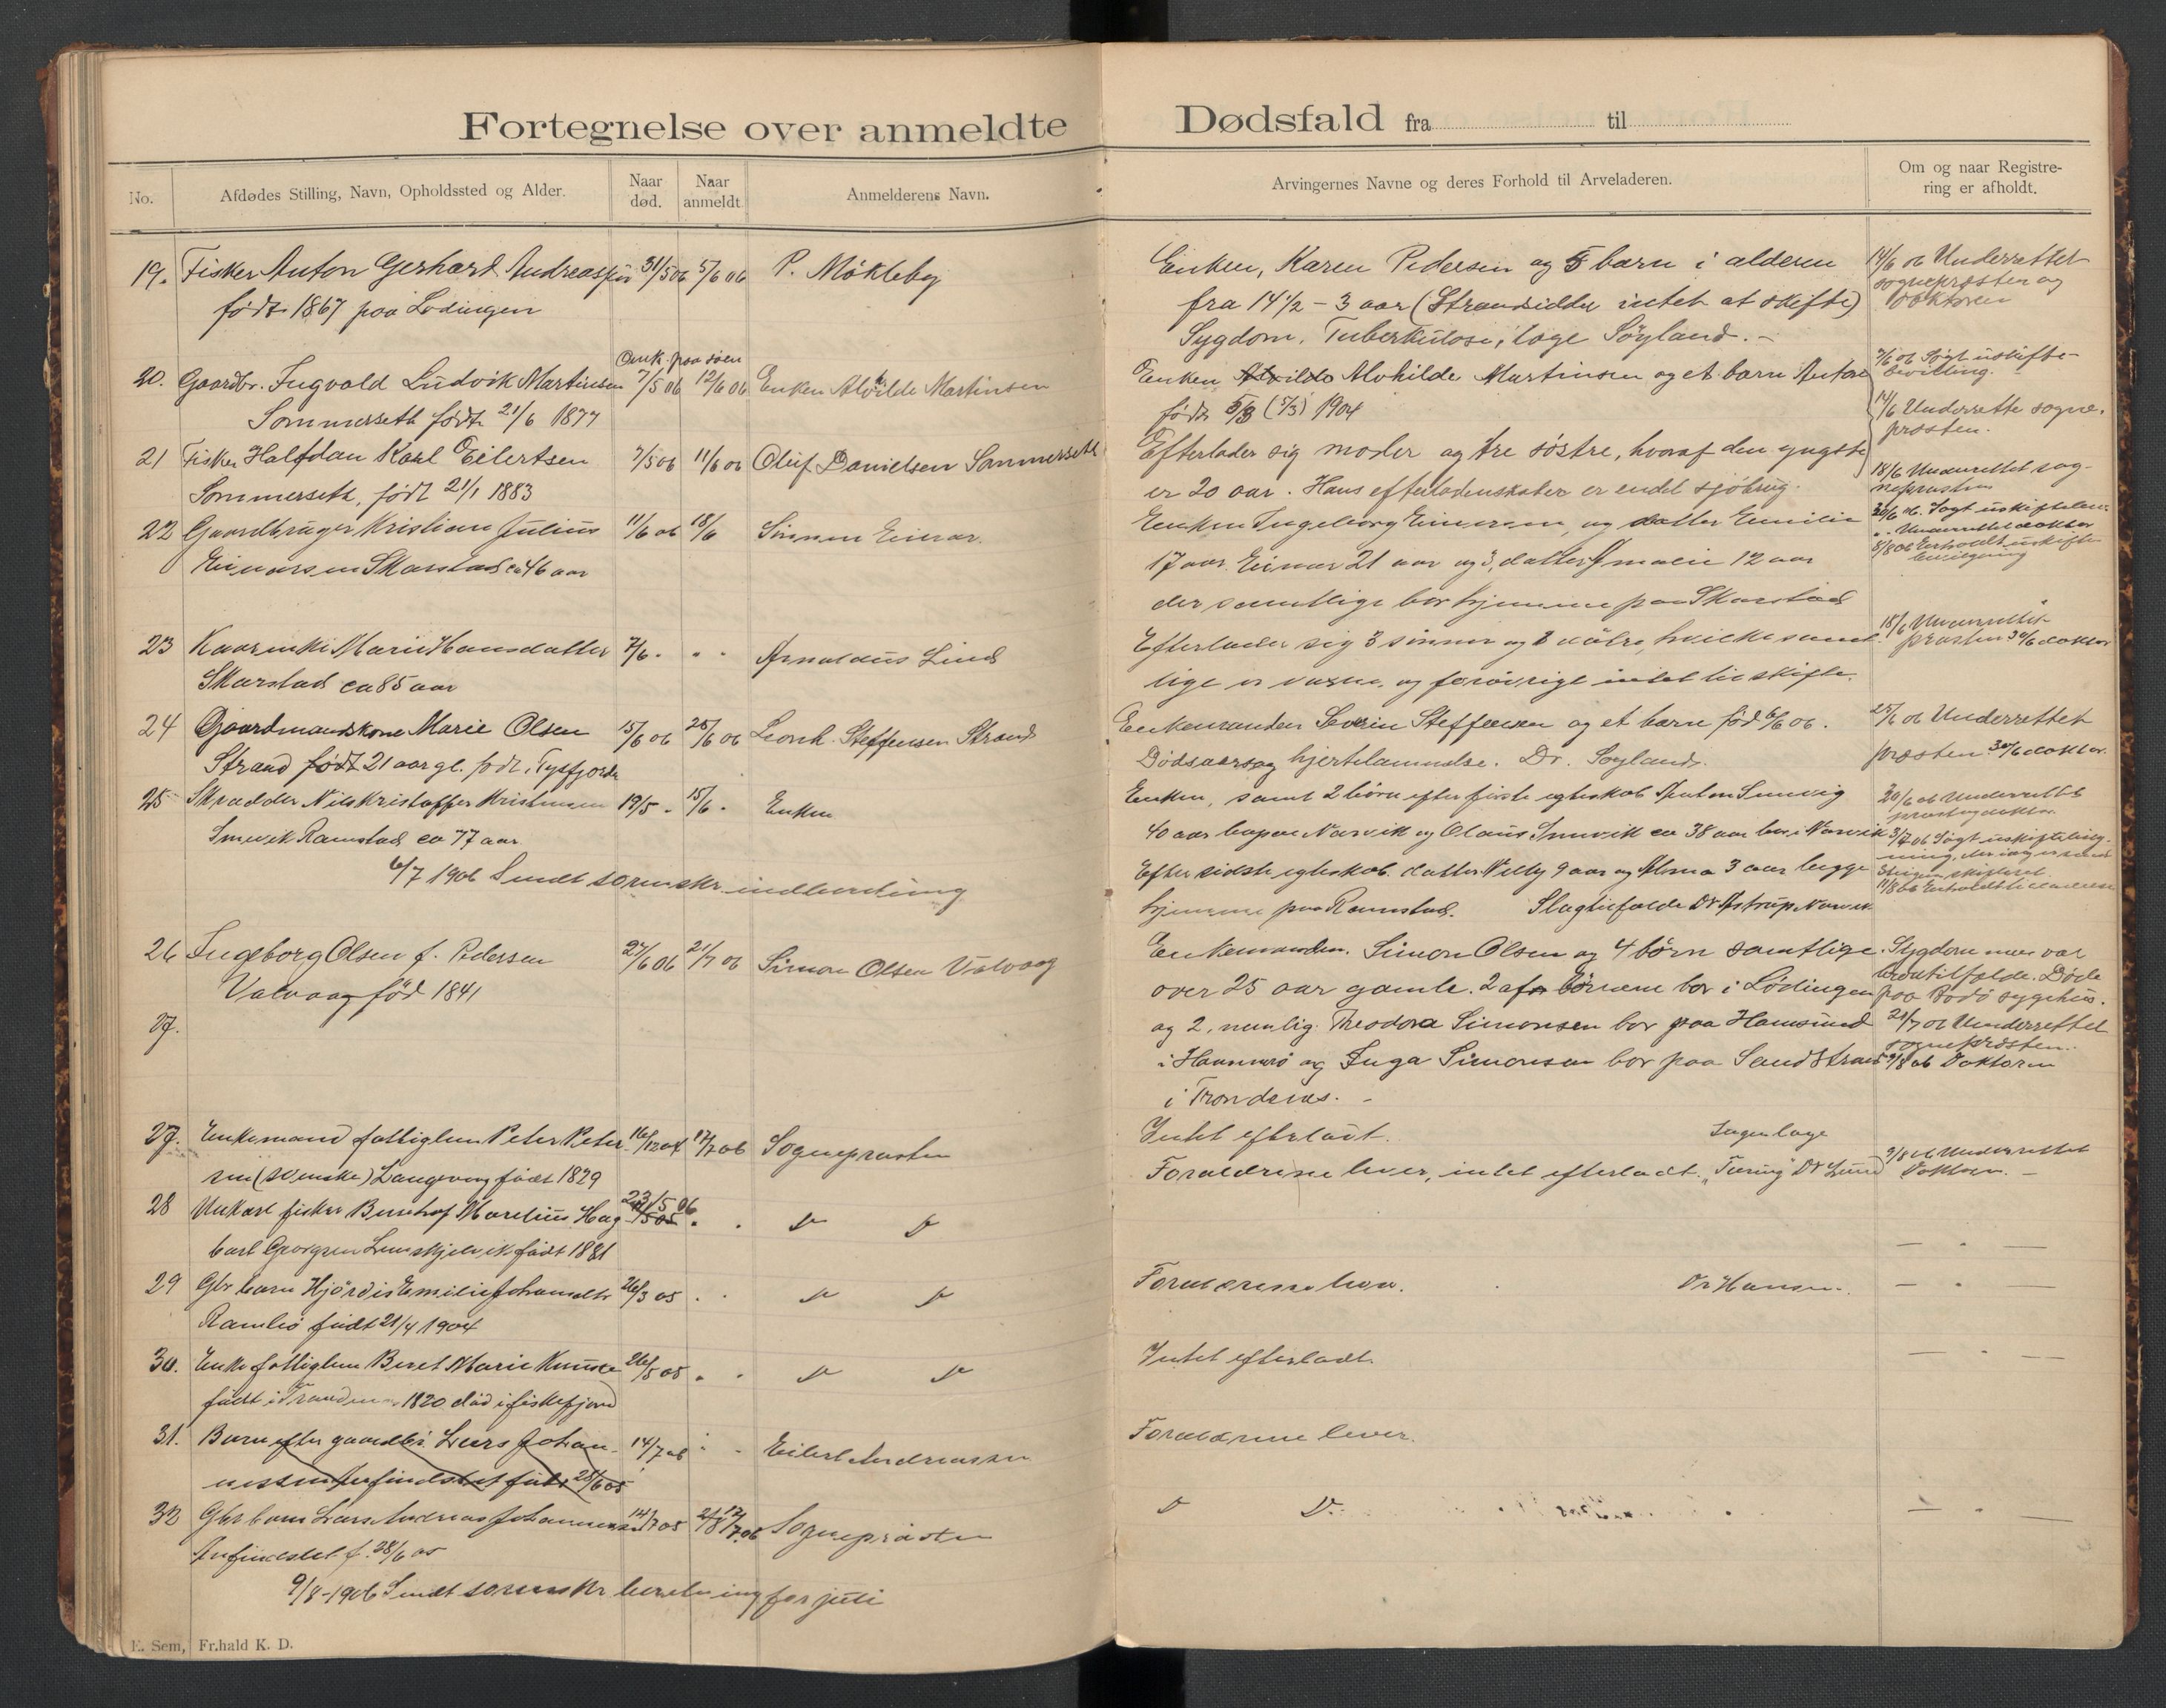 Fortegnelse over anmeldte Dødsfald fra til
No.
Afdødes Stilling, Navn, Opholdssted og Alder.
Naar død.
Naar anmeldt
Anmelderens Navn.
Arvingernes Navne og deres Forhold til Arveladeren.
Om og naar Registrering er afholdt.
19. Fisker Anton Gerhard Andreassen 31/5 06 5/6 06 P. Mökleby
født 1867 paa Lödingen
Enken, Karen Pedersen og 5 barn i alderen
fra 14 1/2 - 3 aar (Strandsidder intet at skifte)
Sygdom. Tuberkulose, læge Söyland. -
14/6 06 Underrettet
sognepræsten og
doktoren
20. Gaardbr. Ingvald Ludvik Martinsen 7/5 06 12/6 06 Enken Alvhilde Martinsen
Omk. paa søen
Sommerseth født 21/6 1877
Enken Alvhilde Martinsen og et barn Anton
født 5/3 (5/3) 1904
7/6 06 Søgt uskifte-
bevilling.
14/6 Underrette sogne-
præsten.
21 Fisker Halfdan Karl Eilertsen 7/5 06 11/6 06 Oluf Danielsen Sommerseth
Sommerseth, født 21/1 1883
Efterlader sig moder og tre søstre, hvoraf den yngste
er 20 aar. Hans efterladenskaber er endel sjöbrug.
18/6 Underrettet sog-
nepræsten
22 Gaardbruger Kristian Julius 11/6 06 18/6 Sönnen Einar.
Einarsen Skarstad ca 46 aar
Enken Ingeborg Einarsen, og datter Emilie
17 aar. Einar 21 aar og datter Amalie 12 aar
der samtlige bor hjemme paa Skarstad
30/6 06. Søgt uskiftebev.
" " Underrettet doktor
8/8 06 Erholdt uskifte
bevilgning
23 Kaarinki Marie Hansdatter 7/6 " " " Arnoldus Lind
Skarstad ca 85 aar
Efterlader sig 3 sönner og 3 døtre, hvilke samt
lige er voxne, og forøvrigt intet til skifte.
18/6 Underrettet
præsten 30/6 doktor
24 Gaardmandskone Marie Olsen 15/6 06 25/6 06 Leonh. Steffensen Strand
Strand født 21 aar gl. født i Tysfjorden
Enkemanden Severin Steffensen og et barn fød 6/6 06.
Dødsaarsag hjertelammelse. Dr. Søyland.
25/6 06 Underrettet
præsten 30/6 doktor.
25 Skrædder Nils Kristoffer Kristensen 19/5 - 15/6 - Enken
Smevik Ramstad ca 77 aar
Enken, samt 2 börn efter första egteskab Anton Smevig
40 aar bopæl Narvik og Olaus Smevik ca 38 aar bor i Narvik
Efter sidste egteskab. datter Nelly 9 aar og Alma 3 aar begge
hjemme paa Ramstad. Slagtilfælde Dr Astrup Narvik
6/7 1906 Sendt sorenskr. indberetning
26 Ingeborg Olsen f. Pedersen 27/6 06 21/7 06 Simon Olsen Valvaag
Valvaag fød 1841
Enkemanden. Simon Olsen og 4 börn samtlige
over 25 aar gamle. 2 af børnene bor i Lödingen
og 2, nemlig Theodora Simonsen bor paa Hamsund
i Hammerö og Inga Simonsen bor paa Sandstrand
i Trondenes. -
Sygdommen var
Døde
paa Bodö sygehus.
21/7 06 Underrettet
sognepræsten.
9/8 06 Doktoren
27.
27. Enkemand fattiglem Peter Peter- 16/12 04 17/7 06 Sognepræsten
sen (svenske) Langvaag födt 1829
Intet efterladt. Ingen læge
9/8 06 Underrettet
Doktoren. -
28 Ungkarl fisker Marelius Hag 23/5 06 " "
født 1881
Forældrene lever, intet efterladt. "Tæring" Dr Lund
29 Gbr barn Hjördis Emilie Johansdtr 26/3 05 " "
Ramlö födt 21/4 1904
Forældrene lever. Dr Hansen.
30. Enke fattiglem Beret Marie Knudsen 26/5 05 " "
födt i Tranden 1820 död i fiskefjord
Intet efterladt.
31. Barn efter gaardbr. Lars Johan- 14/7 06 " " Eilert Andreassen
nessen Arfindslet födt 28/6 05
Forældrene lever.
32 Gbr barn Lars Andreas Johannessen 14/7 05 2/8 17/7 06 Sognepræsten
Anfindslet f. 28/6 05
9/8-1906 Sendt sorenskr beretning for juli
E. Sem, Fr.hald K. D.